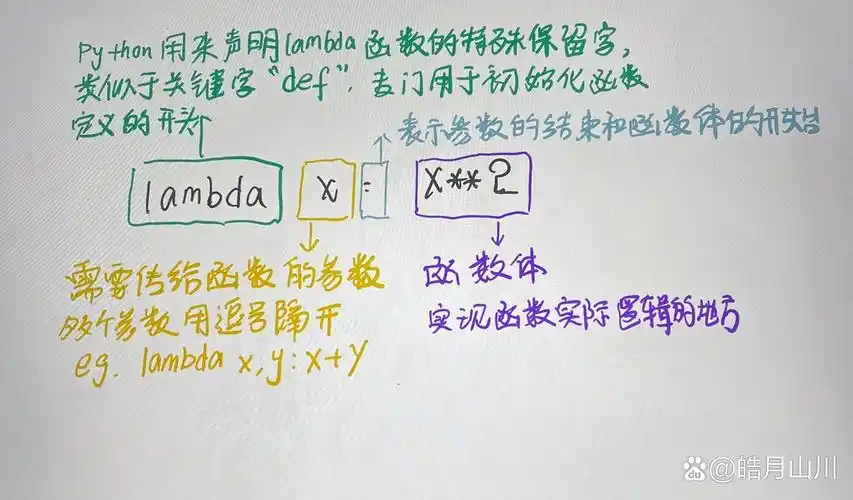 Python用来声明lambda函数的特殊保留字,
类似于关键字"def",专门用于初始化函数
定义的开头
表示参数的结束和函数体的开始
lambda x : x**2
需要传给函数的参数
多个参数用逗号隔开
eg. lambda x,y:x+y
函数体
实现函数实际逻辑的地方
du@皓月山川